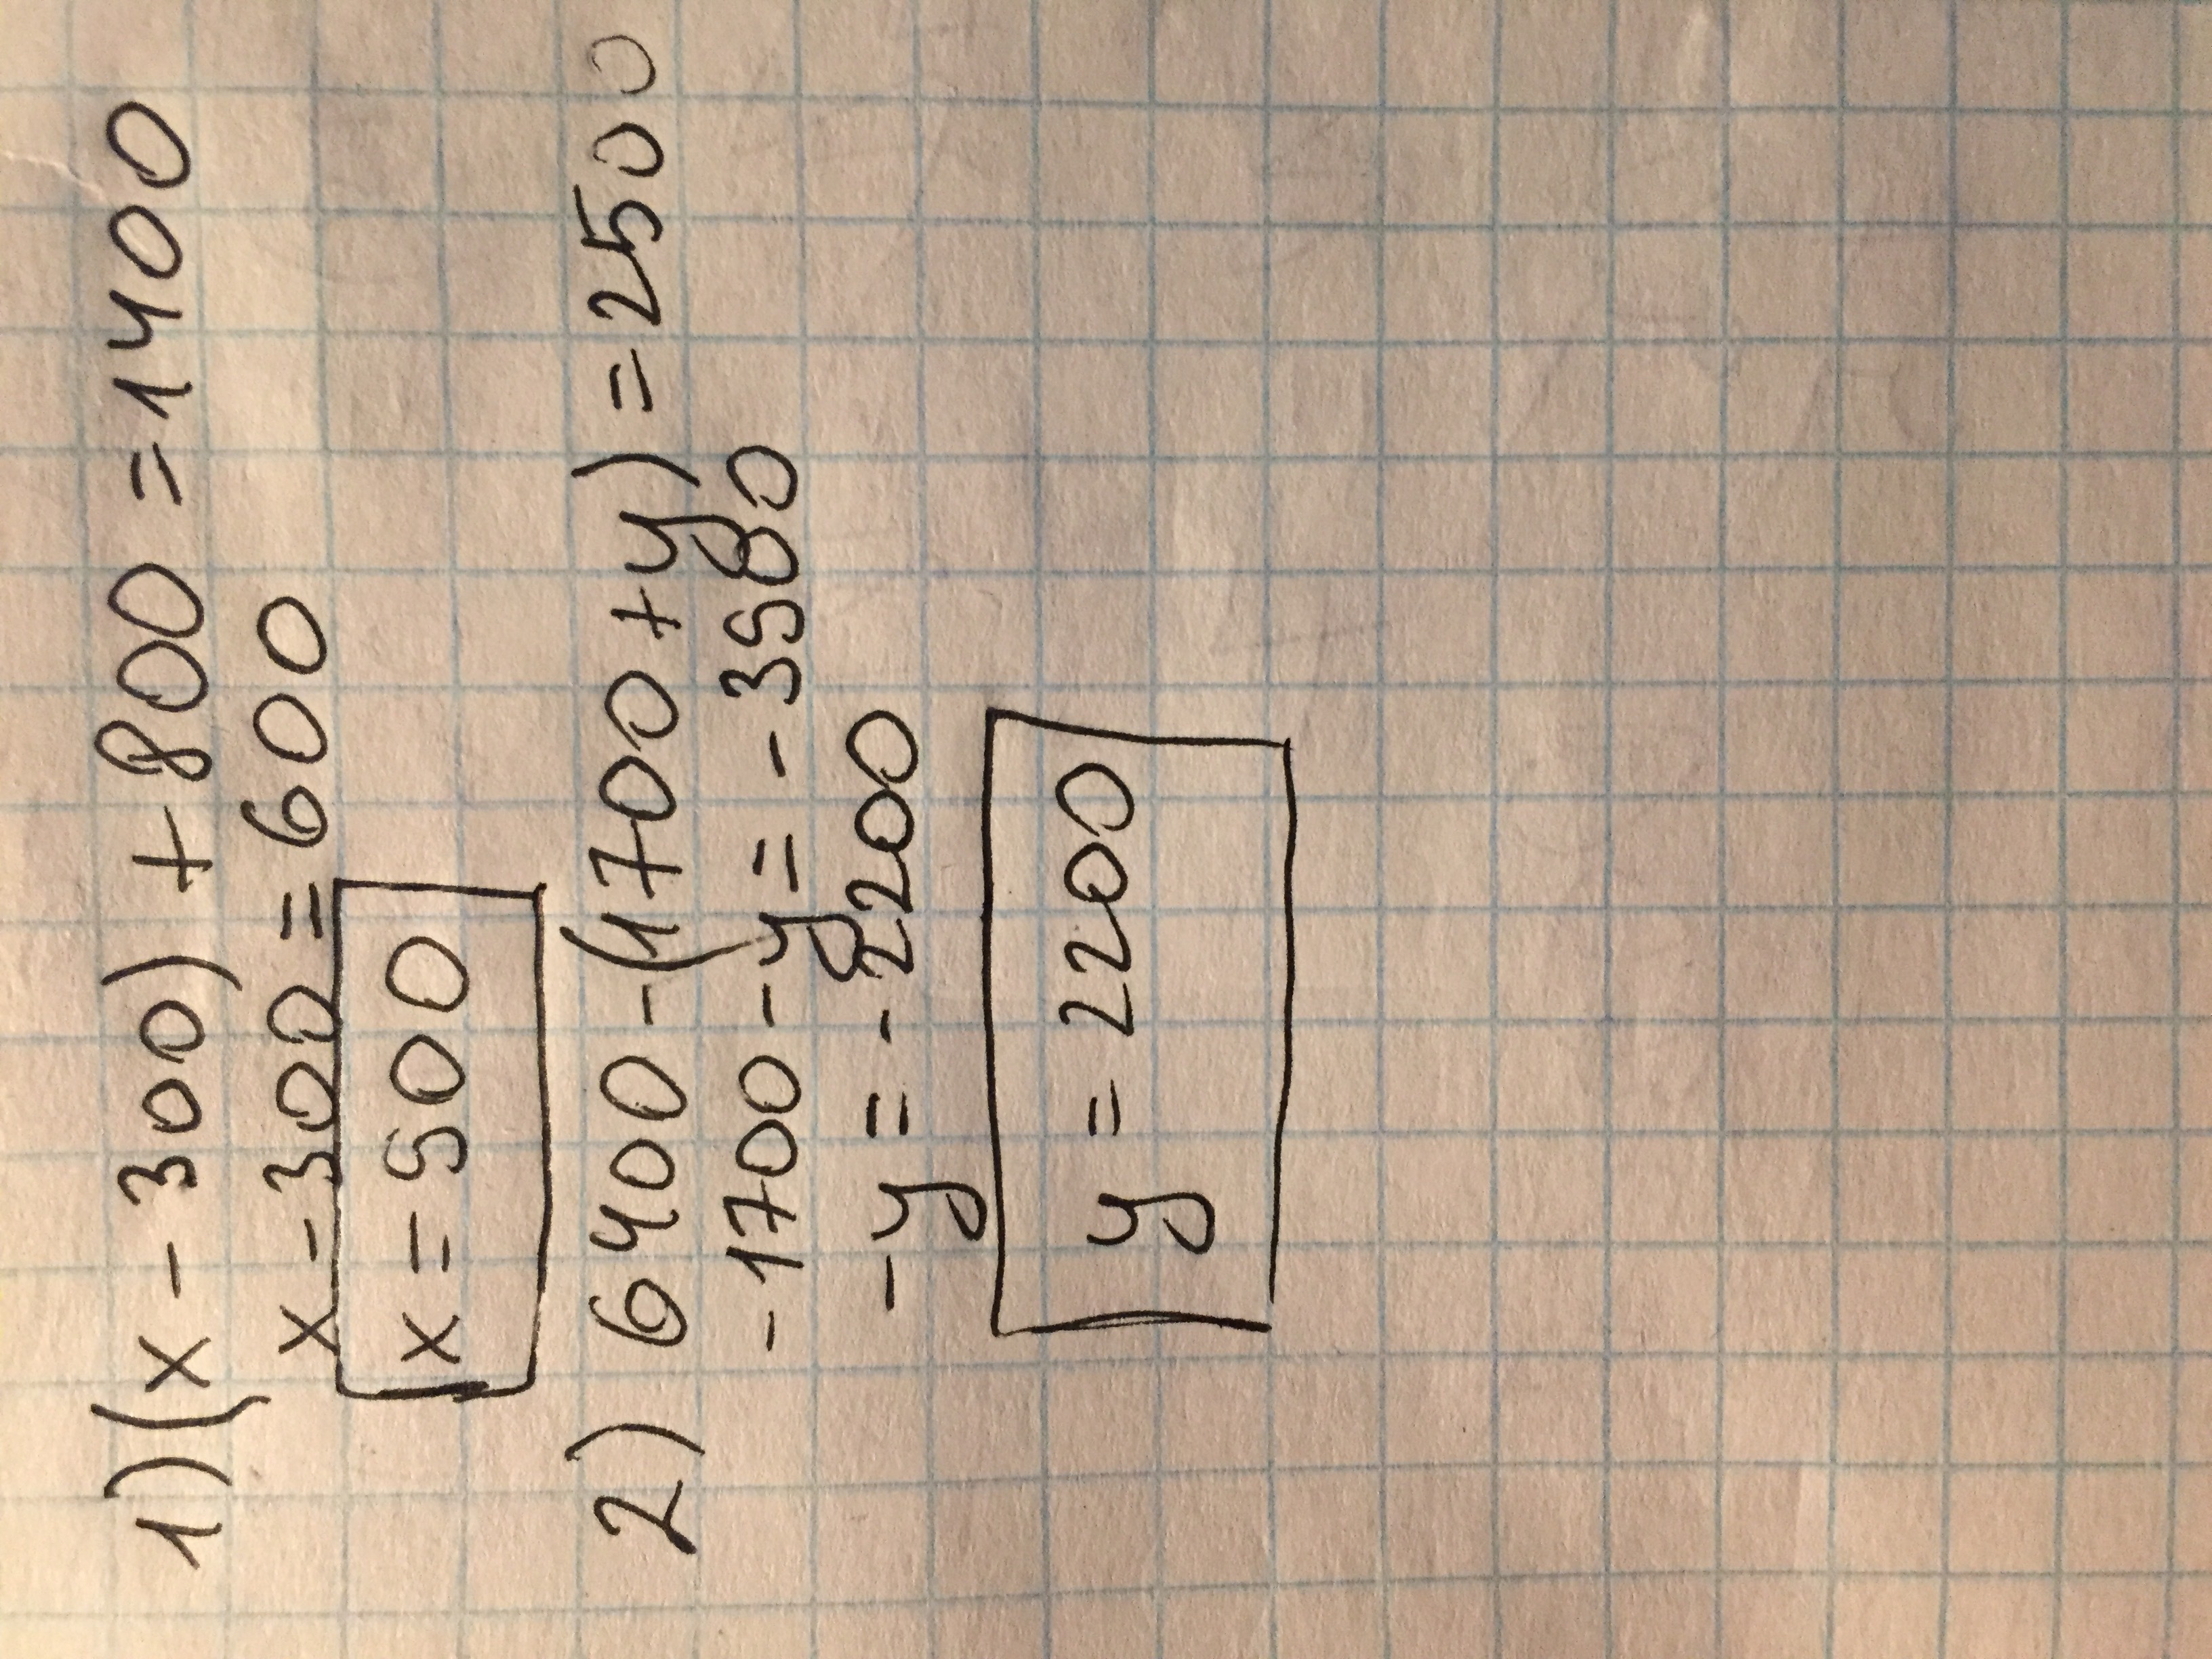 1) (x - 300) + 800 = 1400
x - 300 = 600
x = 900
2) 6400 - (1700 + y) = 2500
-1700 - y = -3980
-y = -2200
y = 2200